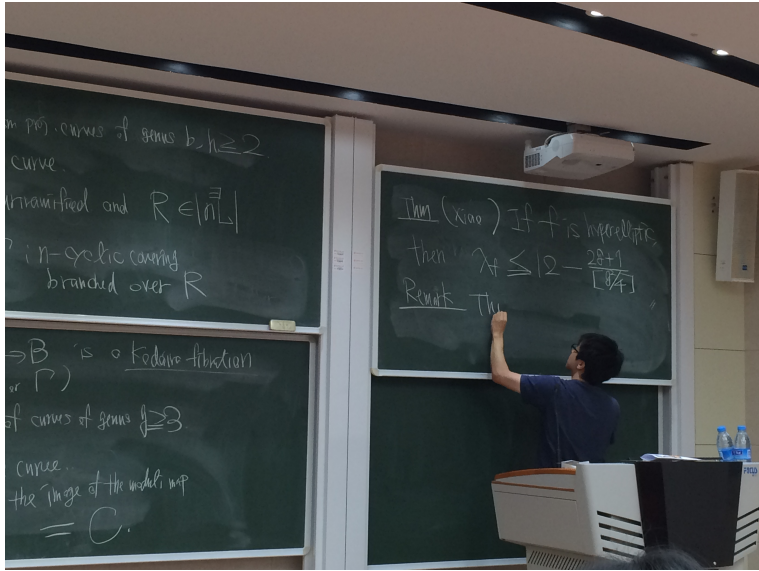 proj. curves of genus b, h ≥ 2
curve.
unramified and R ∈ |nL|
∃
n-cyclic covering
branded over R
→ B is a Kodaira fibration
or Γ)
of curves of genus g ≥ 3
curve.
the image of the moduli map
= C.
Thm (Xiao) If f is hyperelliptic,
then λf ≤ 12 −
Remark Thi